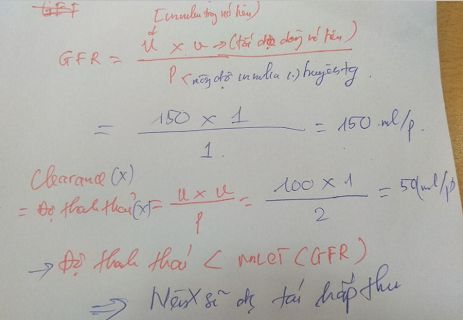 GFR
[inulin] trong nước tiểu)
GFR = U × V → (tốc độ dòng nước tiểu)
P < nồng độ inulin huyết tg.
= 150 × 1 = 150 ml/p.
1.
Clearance (X)
= Độ thanh thải (X) = U × V = 100 × 1 = 50 (ml/p)
P 2
→ Độ thanh thải < MLCT (GFR)
⇒ Nên X sẽ đc tái hấp thu